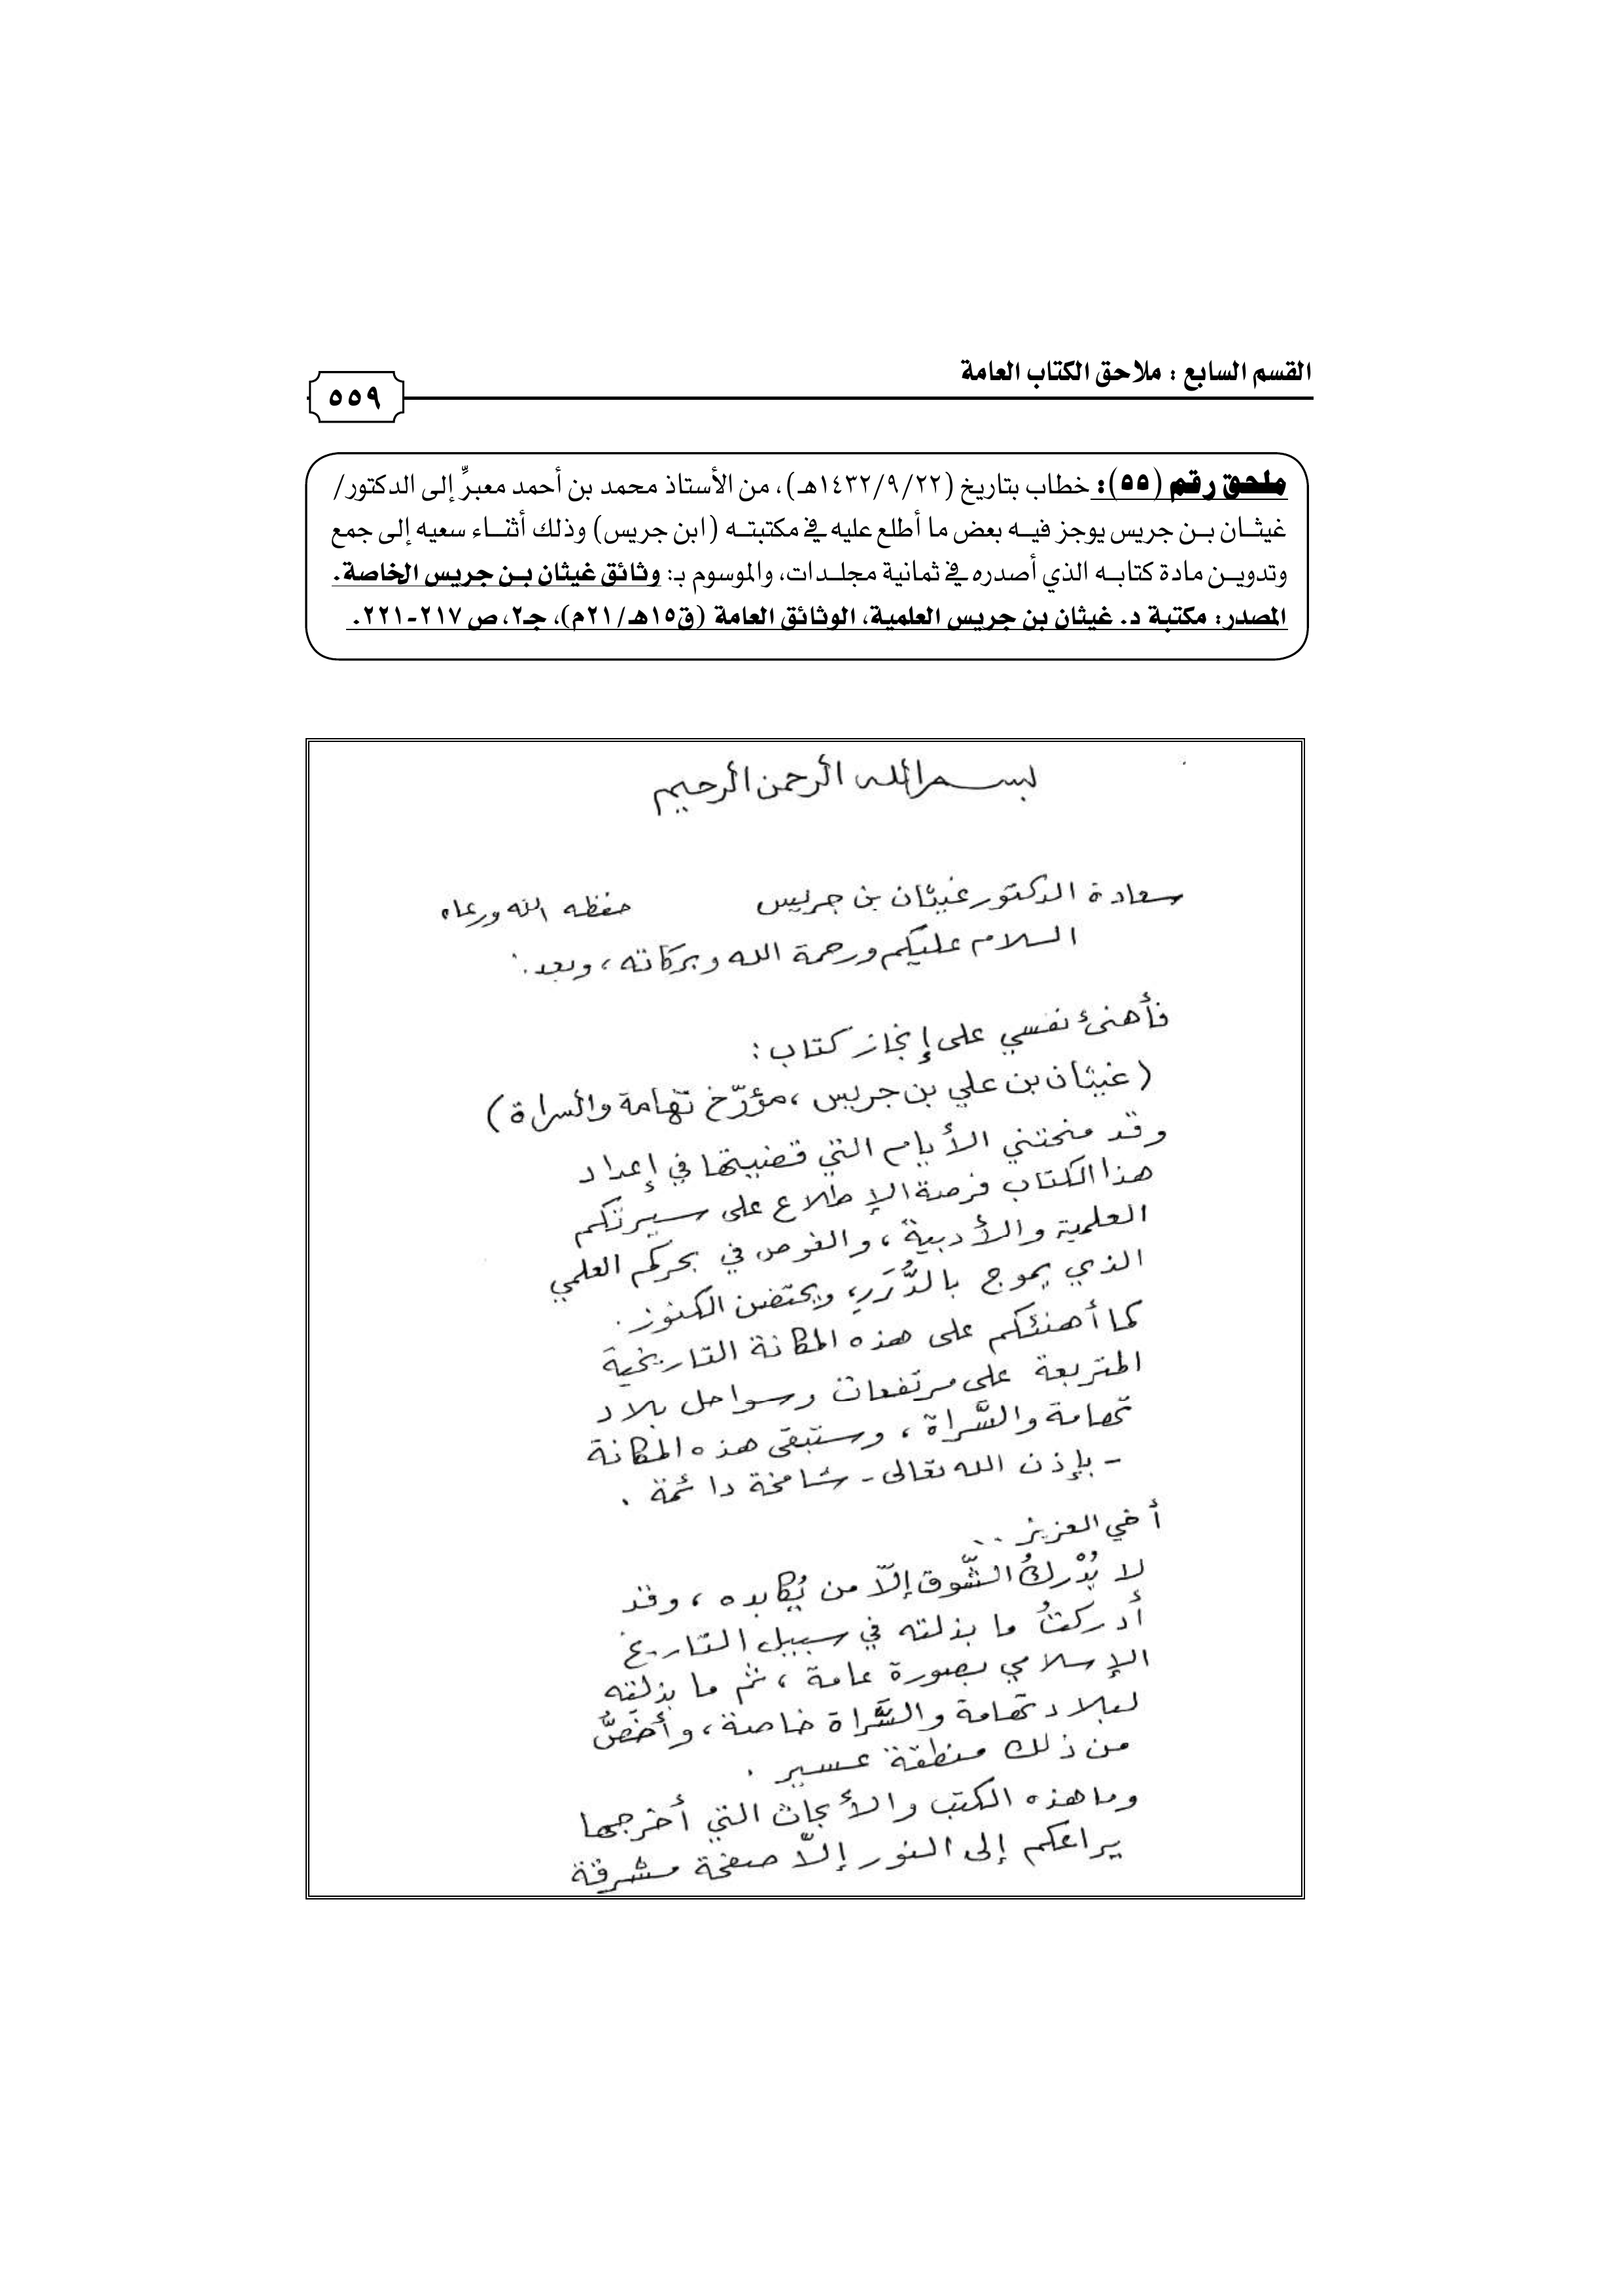 القسم السابع : ملاحق الكتاب العامة
٥٥٩
ملحق رقم (٥٥): خطاب بتاريخ (١٤٣٢/٩/٢٢هـ)، من الأستاذ محمد بن أحمد معبرٍّ إلى الدكتور/
غيثان بن جريس يوجز فيه بعض ما أطلع عليه في مكتبته (ابن جريس) وذلك أثناء سعيه إلى جمع
وتدوين مادة كتابه الذي أصدره في ثمانية مجلدات، والموسوم بـ: وثائق غيثان بن جريس الخاصة.
المصدر: مكتبة د. غيثان بن جريس العلمية، الوثائق العامة (ق١٥هـ/٢١م)، جـ٢، ص ٢١٧-٢٢١.
بسم الله الرحمن الرحيم
سعادة الدكتور غيثان بن جريس حفظه الله ورعاه
السلام عليكم ورحمة الله وبركاته، وبعد:
فأهنئ نفسي على إنجاز كتاب:
(غيثان بن علي بن جريس، مؤرّخ تهامة والسراة)
وقد منحتني الأيام التي قضيتها في إعداد
هذا الكتاب فرصة الإطلاع على سيرتكم
العلمية والأدبية، والغوص في بحركم العلمي
الذي يموج بالدُّرَرِ، ويحتضن الكنوز.
كما أهنئكم على هذه المكانة التاريخية
المتربعة على مرتفعات وسواحل بلاد
تهامة والسَّراة، وستبقى هذه المكانة
- بإذن الله تعالى - شامخة دائمة.
أخي العزيز ..
لا يُدْركُ الشَّوق إلاّ من يُكابده، وقد
أدركتُ ما بذلته في سبيل التاريخ
الإسلامي بصورة عامة، ثم ما بذلته
لبلاد تهامة والسَّراة خاصة، وأخصُّ
من ذلك منطقة عسير.
وما هذه الكتب والأبحاث التي أخرجها
يراعكم إلى النور إلاّ صفحة مشرقة